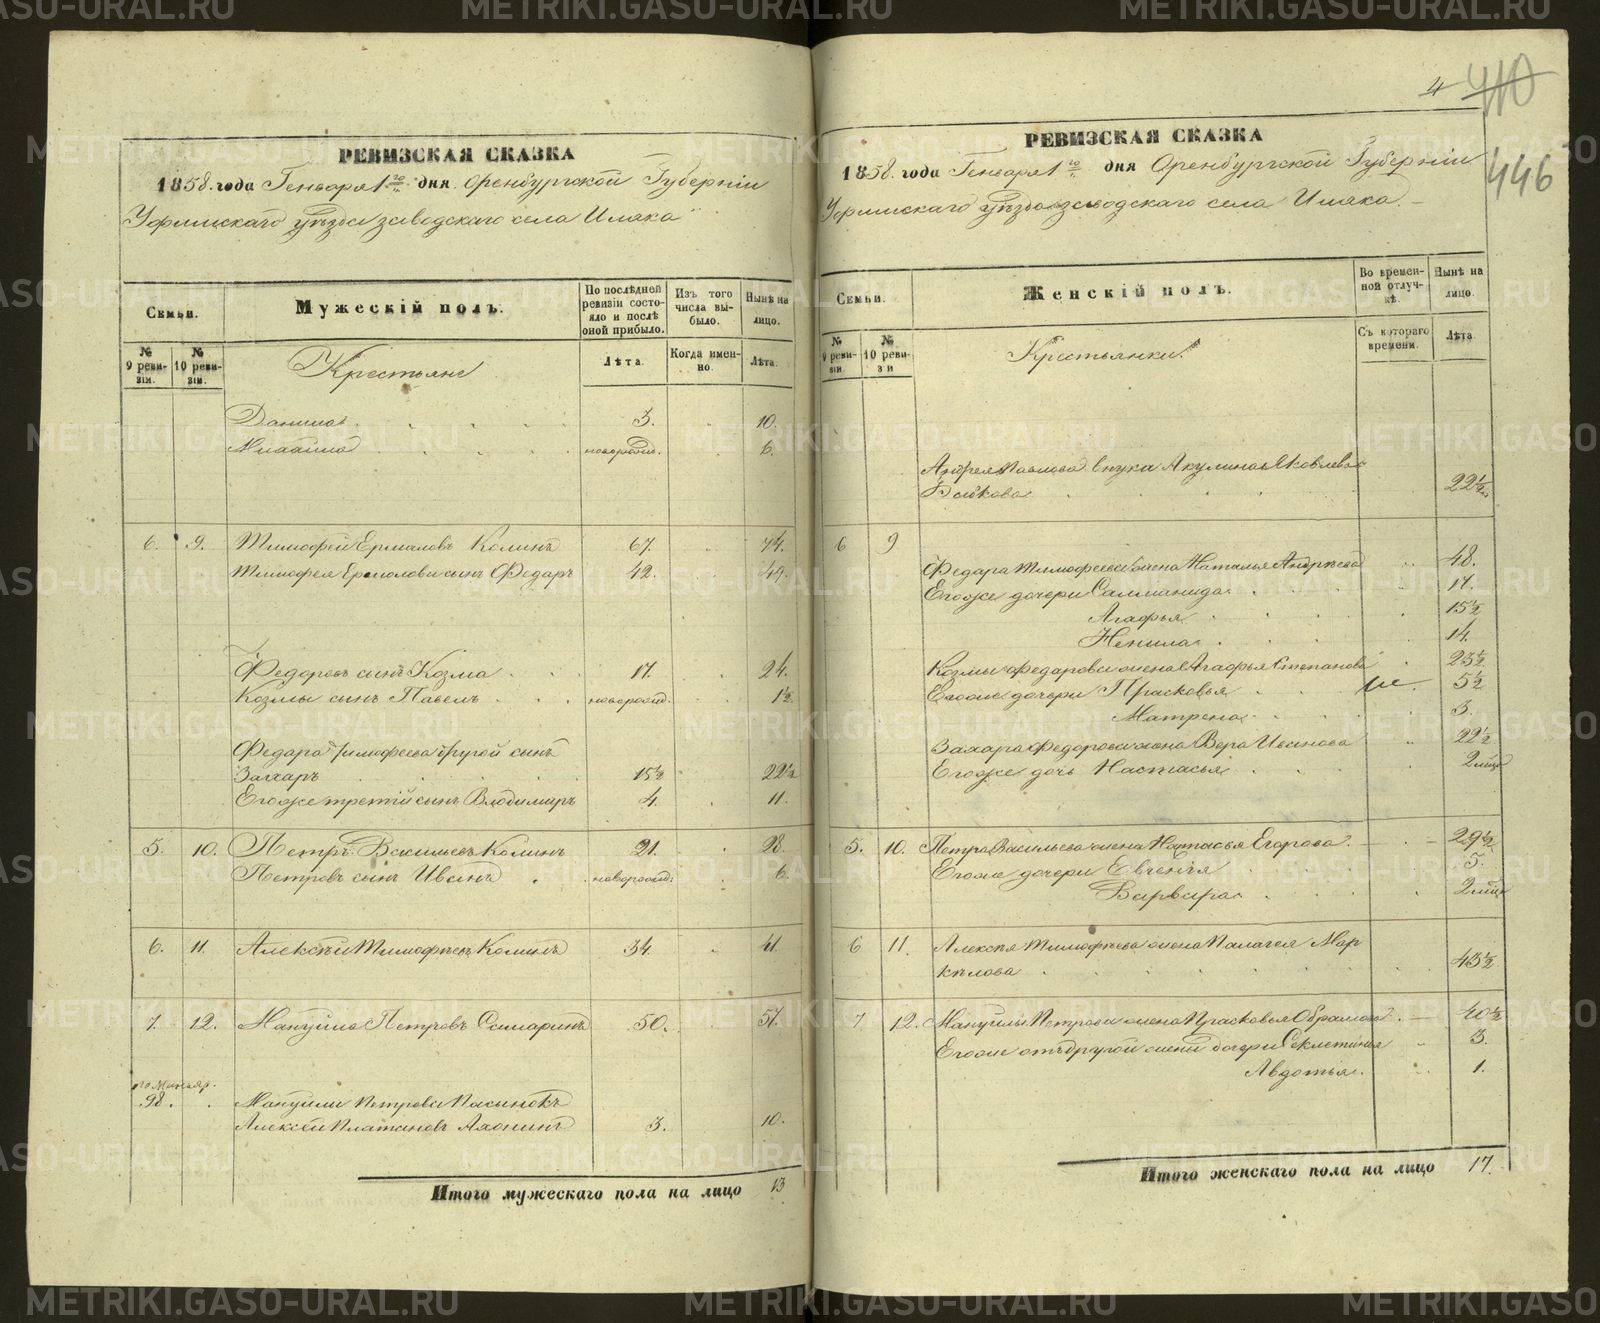 4 410
446
РЕВИЗСКАЯ СКАЗКА
1858. года Генваря 1го дня. Оренбургской Губерніи
Уфимскаго уѣзда заводскаго села Илека
Семьи.
Мужескій полъ.
По послѣдней ревизіи состояло и послѣ оной прибыло.
Изъ того числа выбыло.
Нынѣ на лицо.
№ 9 ревизіи.
№ 10 ревизіи.
Крестьяне
Лѣта.
Когда именно.
Лѣта.
Данила . 3. 10.
новорожд. 6.
6. 9. Тимофей Ермоловъ Колинъ 67. 74.
Тимофея Ермолова сынъ Федоръ 42. 49.
Федоровъ сынъ Козма 17. 24.
Козмы сынъ Павелъ новорожд. 1½
Федора Тимофеева другой сынъ
Захаръ 15½ 22½
Егоже третій сынъ Владимиръ 4. 11.
5. 10. Петръ Васильевъ Колинъ 21. 28.
Петровъ сынъ Иванъ новорожд. 6.
6. 11. Алексѣй Тимофѣевъ Колинъ 34. 41.
7. 12. Мануйла Петровъ Симаринъ 50. 57.
98.
Мануйлы Петрова пасынокъ
Алексѣй Платоновъ 3. 10.
Итого мужескаго пола на лицо 13
РЕВИЗСКАЯ СКАЗКА
1858. года Генваря 1го дня Оренбургской Губерніи
Уфимскаго уѣзда заводскаго села Илека.
Семьи.
Женскій полъ.
Во временной отлучкѣ.
Нынѣ на лицо.
№ 9 ревизіи
№ 10 ревизіи
Крестьянки.
Съ котораго времени.
Лѣта.
Андрея Павлова внука Акулина Яковлева
22½
6 9
Федора Тимофеева жена Наталья Андрѣева 48.
Егоже дочери Саломанида 17.
Агафья 15½
Ненила 14.
Козмы Федорова жена Агафья Степанова 23½
Егоже дочери Прасковья 5½
Матрена 3.
Захара Федорова жена Вера Иванова 22½
Егоже дочь Настасья 2 мѣся
5. 10. Петра Васильева жена Настасья Егорова 29½
Егоже дочери Евгенія 5.
Варвара 2 мѣся
6 11. Алексѣя Тимофѣева жена Палагея Мар
кѣлова 43½
7 12. Мануйлы Петрова жена Прасковья Абрамова 40½
Егоже отъ другой жены дочери Секлетинья 3.
Авдотья. 1.
Итого женскаго пола на лицо 17.
METRIKI.GASO-URAL.RU